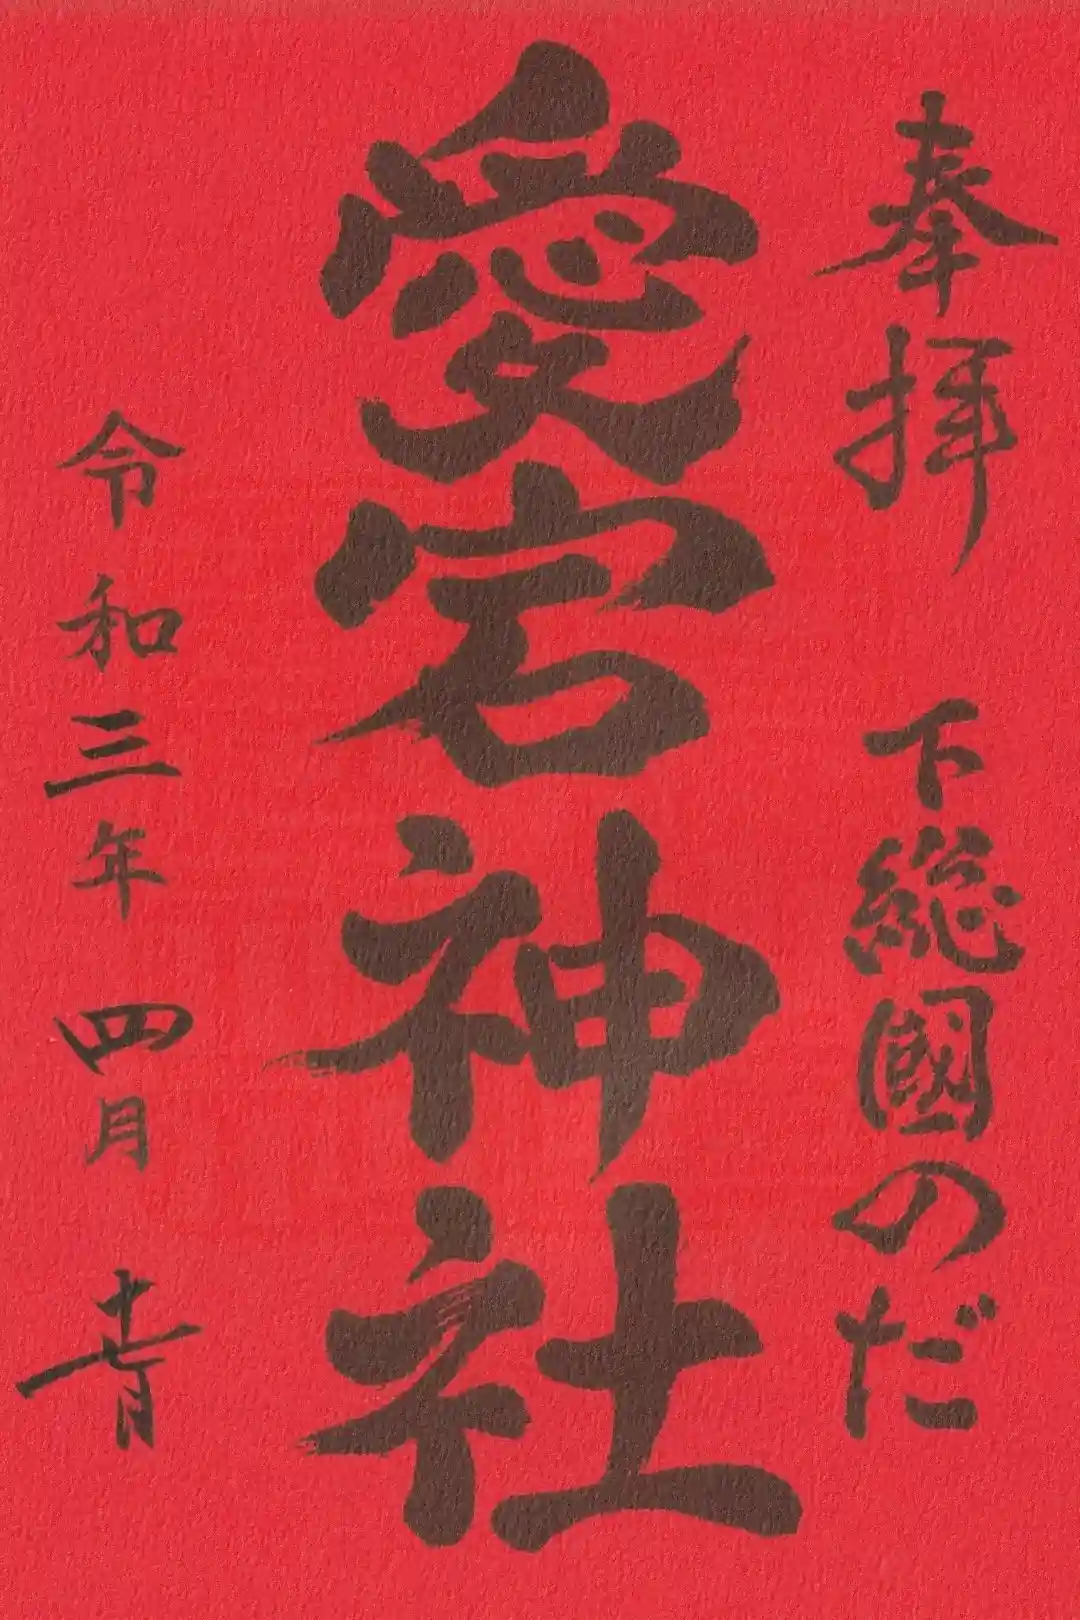 奉拝 下総國のだ
愛宕神社
令和三年 四月